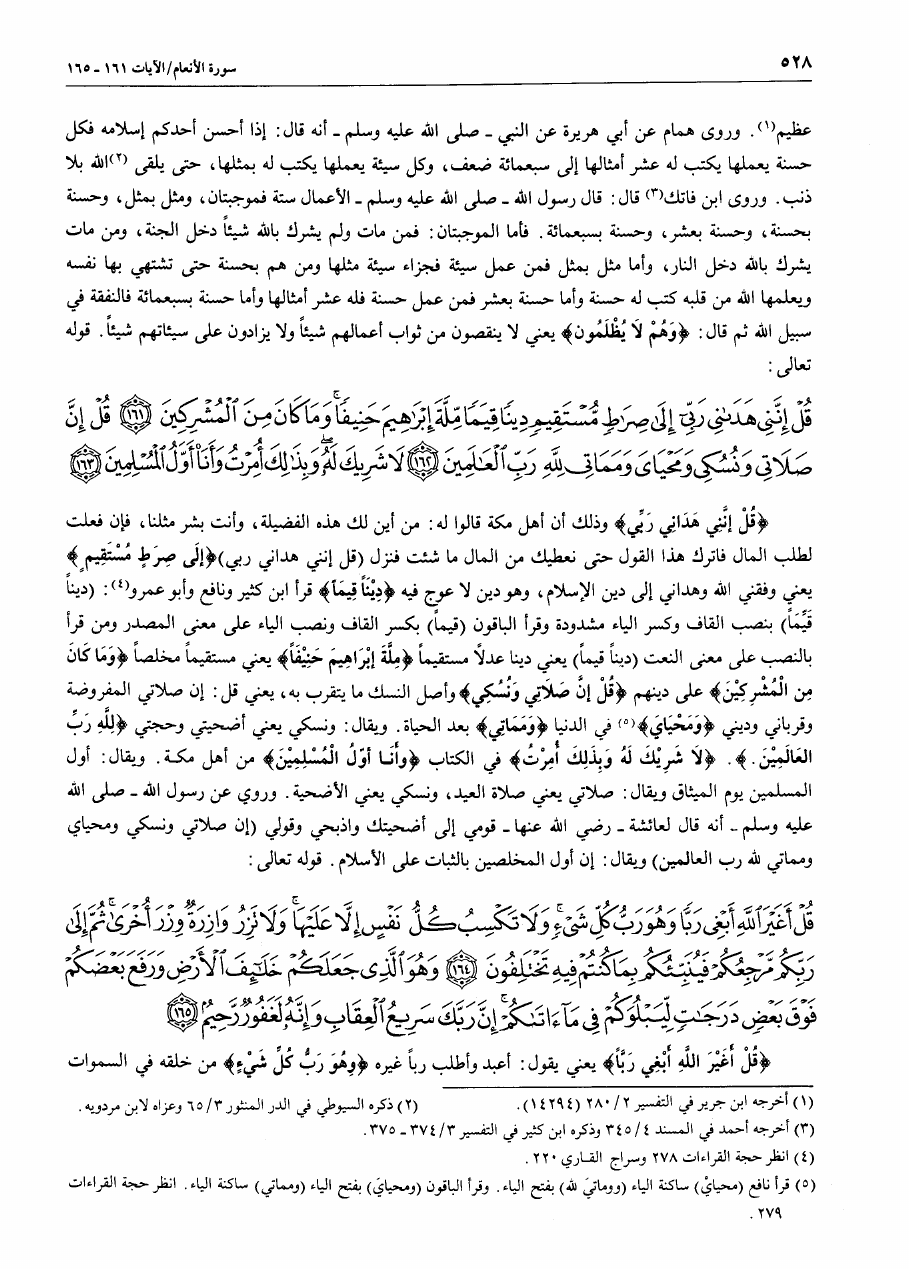 ٥٢٨
سورة الأنعام/الآيات ١٦١ - ١٦٥
عظيم(١). وروى همام عن أبي هريرة عن النبي - صلى الله عليه وسلم - أنه قال: إذا أحسن أحدكم إسلامه فكل
حسنة يعملها يكتب له عشر أمثالها إلى سبعمائة ضعف، وكل سيئة يعملها يكتب له بمثلها، حتى يلقى (٢)الله بلا
ذنب. وروى ابن فاتك(٣) قال: قال رسول الله - صلى الله عليه وسلم - الأعمال ستة فموجبتان، ومثل بمثل، وحسنة
بحسنة، وحسنة بعشر، وحسنة بسبعمائة. فأما الموجبتان: فمن مات ولم يشرك بالله شيئاً دخل الجنة، ومن مات
يشرك بالله دخل النار، وأما مثل بمثل فمن عمل سيئة فجزاء سيئة مثلها ومن هم بحسنة حتى تشتهي بها نفسه
ويعلمها الله من قلبه كتب له حسنة وأما حسنة بعشر فمن عمل حسنة فله عشر أمثالها وأما حسنة بسبعمائة فالنفقة في
سبيل الله ثم قال: ﴿وَهُمْ لَا يُظْلَمُون﴾ يعني لا ينقصون من ثواب أعمالهم شيئاً ولا يزادون على سيئاتهم شيئاً. قوله
تعالى:
قُلْ إِنَّنِي هَدَىٰنِي رَبِّيٓ إِلَىٰ صِرَٰطٖ مُّسْتَقِيمٖ دِينٗا قِيَمٗا مِّلَّةَ إِبْرَٰهِيمَ حَنِيفٗاۚ وَمَا كَانَ مِنَ ٱلْمُشْرِكِينَ ﴿١٦١﴾ قُلْ إِنَّ
صَلَاتِي وَنُسُكِي وَمَحْيَايَ وَمَمَاتِي لِلَّهِ رَبِّ ٱلْعَٰلَمِينَ ﴿١٦٢﴾ لَا شَرِيكَ لَهُۥۖ وَبِذَٰلِكَ أُمِرْتُ وَأَنَا۠ أَوَّلُ ٱلْمُسْلِمِينَ ﴿١٦٣﴾
﴿قُلْ إِنَّنِي هَدَانِي رَبِّي﴾ وذلك أن أهل مكة قالوا له: من أين لك هذه الفضيلة، وأنت بشر مثلنا، فإن فعلت
لطلب المال فاترك هذا القول حتى نعطيك من المال ما شئت فنزل (قل إنني هداني ربي)﴿إِلَى صِرَطٍ مُسْتَقِيمٍ﴾
يعني وفقني الله وهداني إلى دين الإسلام، وهو دين لا عوج فيه ﴿دِيْنَاً قِيَمَاً﴾ قرأ ابن كثير ونافع وأبو عمرو(٤): (ديناً
قَيِّمَاً) بنصب القاف وكسر الياء مشدودة وقرأ الباقون (قيماً) بكسر القاف ونصب الياء على معنى المصدر ومن قرأ
بالنصب على معنى النعت (ديناً قيماً) يعني دينا عدلاً مستقيماً ﴿مِلَّةَ إبْرَاهِيمَ حَنِيْفَاً﴾ يعني مستقيماً مخلصاً ﴿وَمَا كَانَ
مِن الْمُشْرِكِيْنَ﴾ على دينهم ﴿قُلْ إنَّ صَلَاتِي وَنُسُكِي﴾ وأصل النسك ما يتقرب به، يعني قل: إن صلاتي المفروضة
وقرباني وديني ﴿وَمَحْيَايَ﴾(٥) في الدنيا ﴿وَمَمَاتِي﴾ بعد الحياة. ويقال: ونسكي يعني أضحيتي وحجتي ﴿لِلَّهِ رَبِّ
العَالَمِيْنَ.﴾. ﴿لَا شَرِيْكَ لَهُ وَبِذَلِكَ أُمِرْتُ﴾ في الكتاب ﴿وأَنَا أوَّلُ الْمُسْلِمِيْنَ﴾ من أهل مكة. ويقال: أول
المسلمين يوم الميثاق ويقال: صلاتي يعني صلاة العيد، ونسكي يعني الأضحية. وروي عن رسول الله - صلى الله
عليه وسلم - أنه قال لعائشة - رضي الله عنها - قومي إلى أضحيتك واذبحي وقولي (إن صلاتي ونسكي ومحياي
ومماتي لله رب العالمين) ويقال: إن أول المخلصين بالثبات على الأسلام. قوله تعالى:
قُلْ أَغَيْرَ ٱللَّهِ أَبْغِي رَبّٗا وَهُوَ رَبُّ كُلِّ شَيْءٖۚ وَلَا تَكْسِبُ كُلُّ نَفْسٍ إِلَّا عَلَيْهَاۚ وَلَا تَزِرُ وَازِرَةٞ وِزْرَ أُخْرَىٰۚ ثُمَّ إِلَىٰ
رَبِّكُم مَّرْجِعُكُمْ فَيُنَبِّئُكُم بِمَا كُنتُمْ فِيهِ تَخْتَلِفُونَ ﴿١٦٤﴾ وَهُوَ ٱلَّذِي جَعَلَكُمْ خَلَٰٓئِفَ ٱلْأَرْضِ وَرَفَعَ بَعْضَكُمْ
فَوْقَ بَعْضٖ دَرَجَٰتٖ لِّيَبْلُوَكُمْ فِي مَآ ءَاتَىٰكُمْۗ إِنَّ رَبَّكَ سَرِيعُ ٱلْعِقَابِ وَإِنَّهُۥ لَغَفُورٞ رَّحِيمُۢ ﴿١٦٥﴾
﴿قُلْ أَغَيْرَ اللَّهِ أَبْغِي رَبَّاً﴾ يعني يقول: أعبد وأطلب رباً غيره ﴿وهُوَ رَبُّ كُلِّ شَيْءٍ﴾ من خلقه في السموات
(١) أخرجه ابن جرير في التفسير ٢/ ٢٨٠ (١٤٢٩٤). (٢) ذكره السيوطي في الدر المنثور ٣/ ٦٥ وعزاه لابن مردويه.
(٣) أخرجه أحمد في المسند ٤/ ٣٤٥ وذكره ابن كثير في التفسير ٣/ ٣٧٤ - ٣٧٥.
(٤) انظر حجة القراءات ٢٧٨ وسراج القاري ٢٢٠.
(٥) قرأ نافع (محيايْ) ساكنة الياء (وومماتيَ لله) بفتح الياء. وقرأ الباقون (ومحيايَ) بفتح الياء (ومماتي) ساكنة الياء. انظر حجة القراءات
٢٧٩.